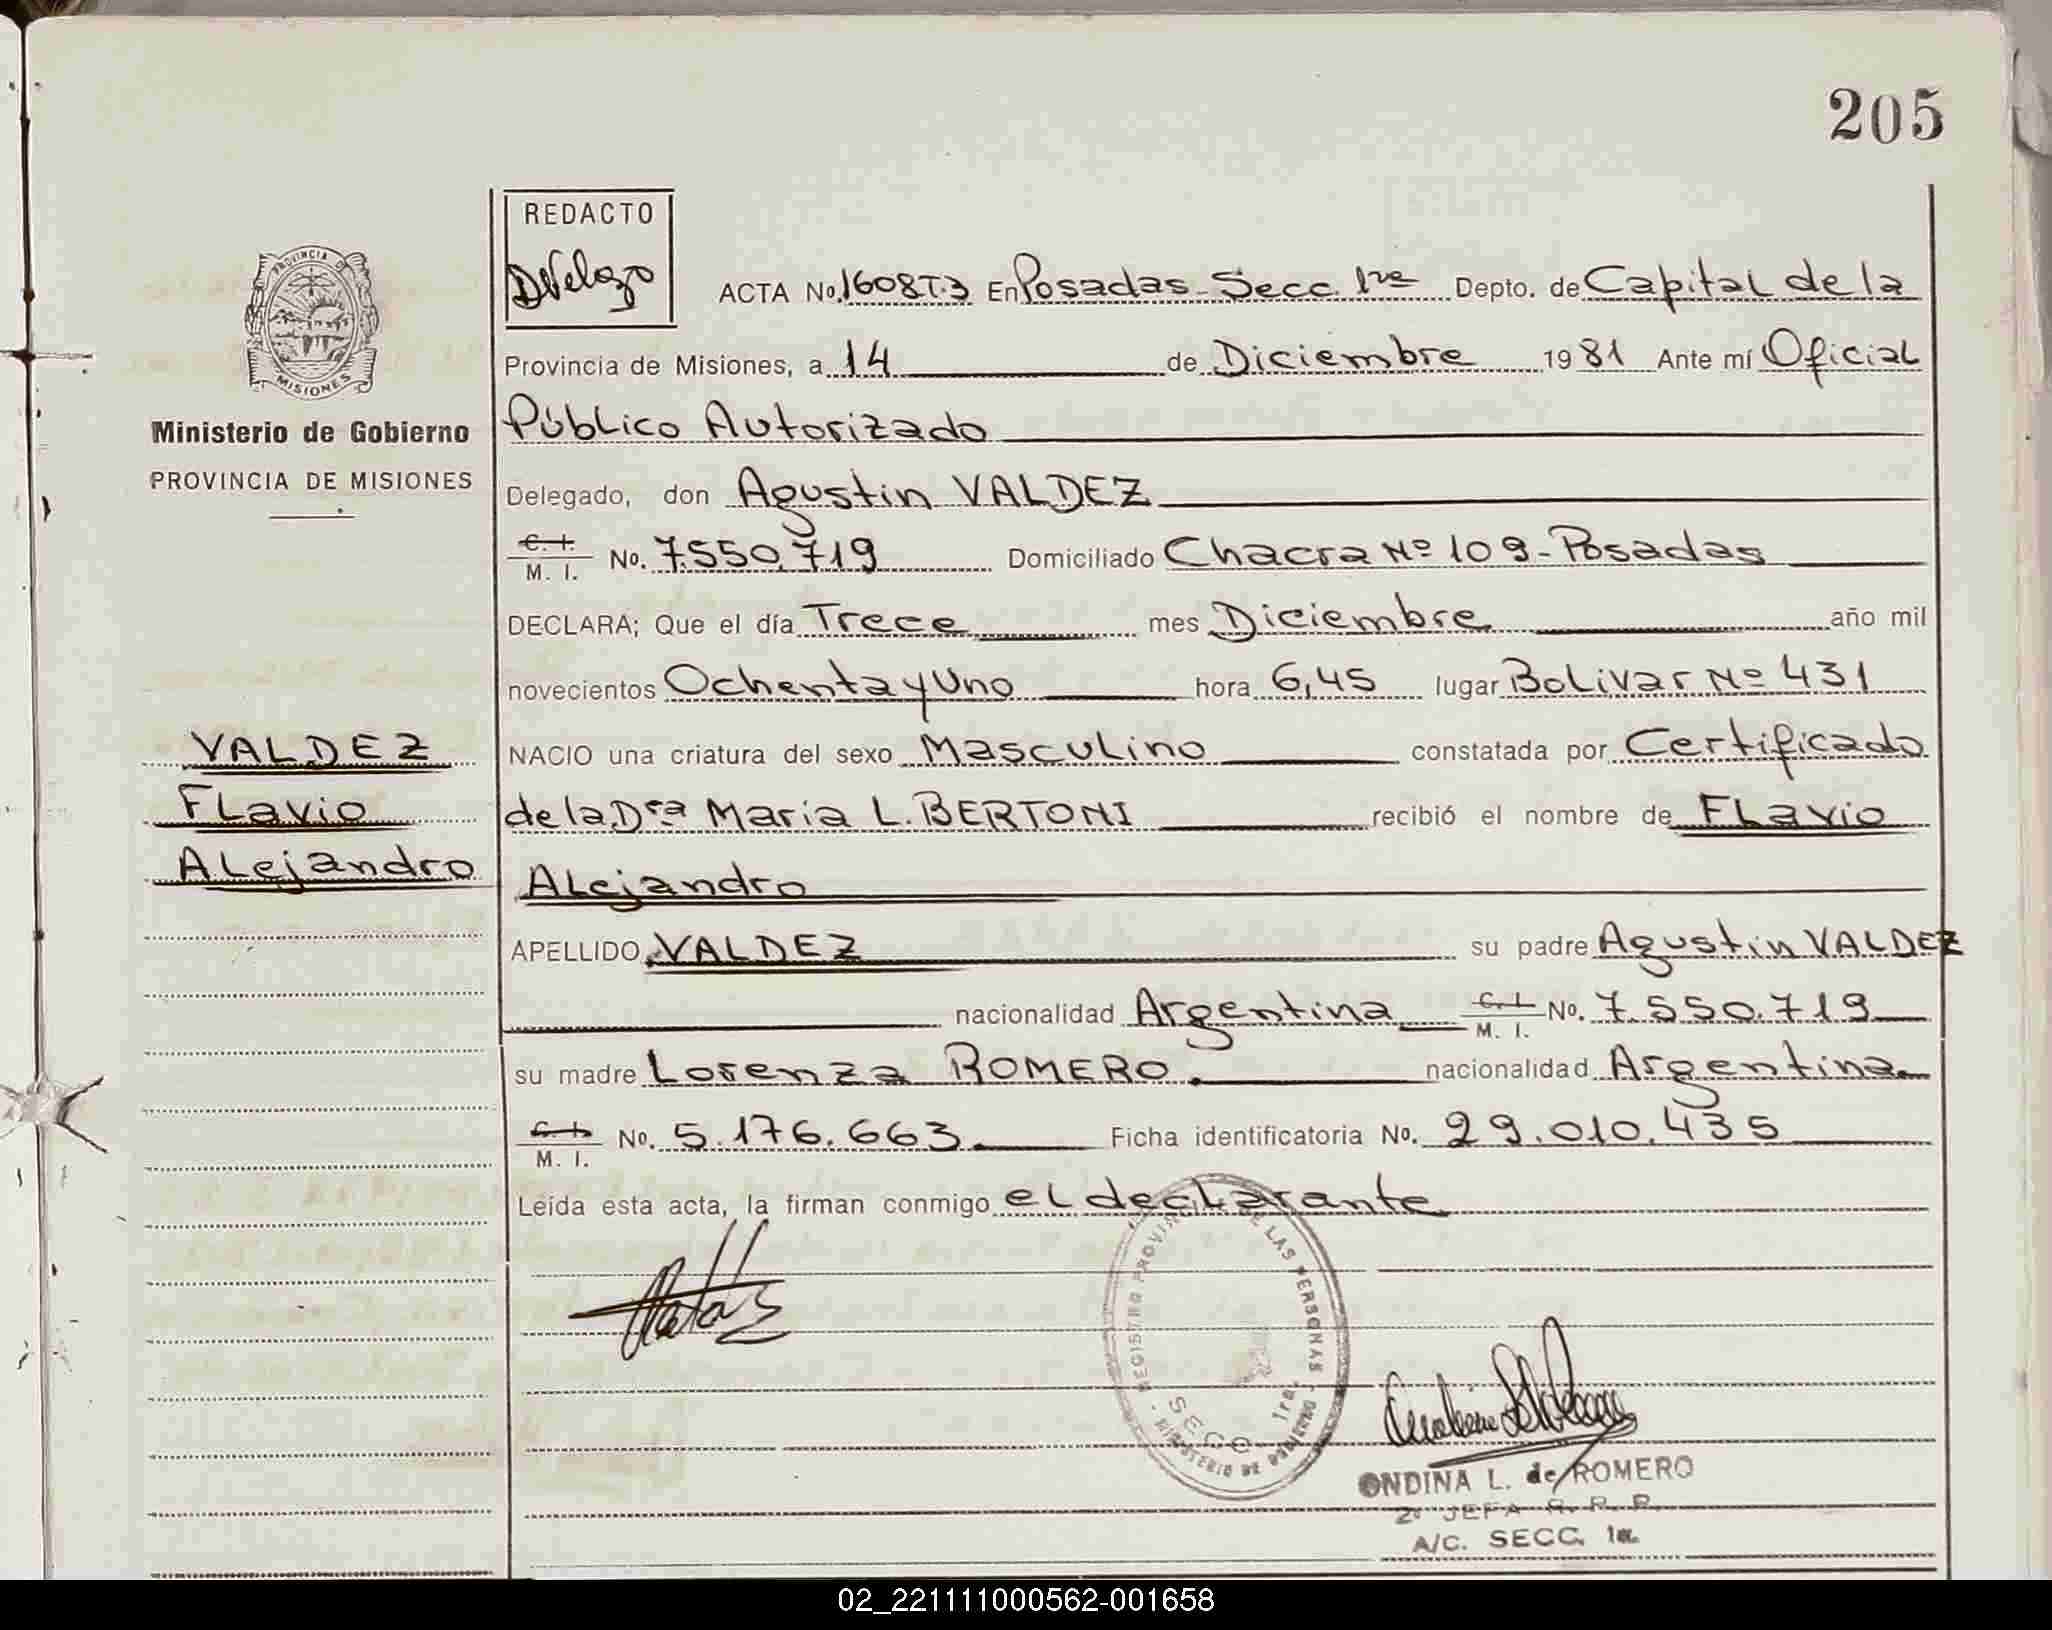 205
REDACTO
DVelozo
ACTA No. 1608T.3 En Posadas - Secc. 1ra Depto. de Capital de la
PROVINCIA DE
MISIONES
Provincia de Misiones, a 14 de Diciembre 1981 Ante mí Oficial
Ministerio de Gobierno
Público Autorizado
PROVINCIA DE MISIONES
Delegado, don Agustin VALDEZ
C. I.
M. I. No. 7.550.719 Domiciliado Chacra Nº 109 - Posadas
DECLARA; Que el día Trece mes Diciembre año mil
novecientos Ochenta y Uno hora 6,45 lugar Bolivar Nº 431
VALDEZ
NACIO una criatura del sexo Masculino constatada por Certificado
Flavio
de la Dra Maria L. BERTONI recibió el nombre de Flavio
Alejandro
Alejandro
APELLIDO VALDEZ su padre Agustin VALDEZ
nacionalidad Argentina C. I.
M. I. No. 7.550.719
su madre Lorenza ROMERO. nacionalidad Argentina
C. I.
M. I. No. 5.176.663 Ficha identificatoria No. 29.010.435
Leída esta acta, la firman conmigo el declarante
REGISTRO PROVINCIAL DE LAS PERSONAS
SECC. 1ra.
MINISTERIO DE GOBIERNO
ONDINA L. de ROMERO
2º JEFA R. P. P.
A/C. SECC. 1a.
02_221111000562-001658